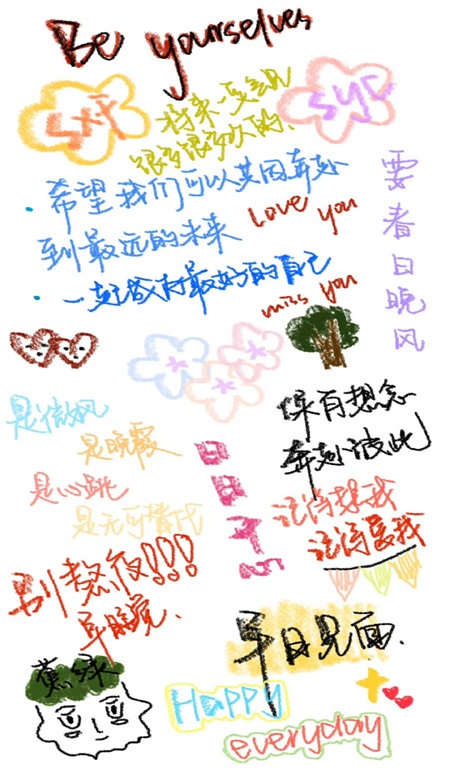 Be yourselves
syc
将来一定会见
很多很多次的.
· 希望我们可以共同奔赴
到最远的未来
· 一起成为最好的自己
Love you
miss you
春日晚风
是微风
是晚霞
是心跳
是无可替代
保有想念
奔赴彼此
日日平安
记得想我
记得爱我
别熬夜!!!
早睡觉.
早日见面.
蕉绿
Happy
everyday